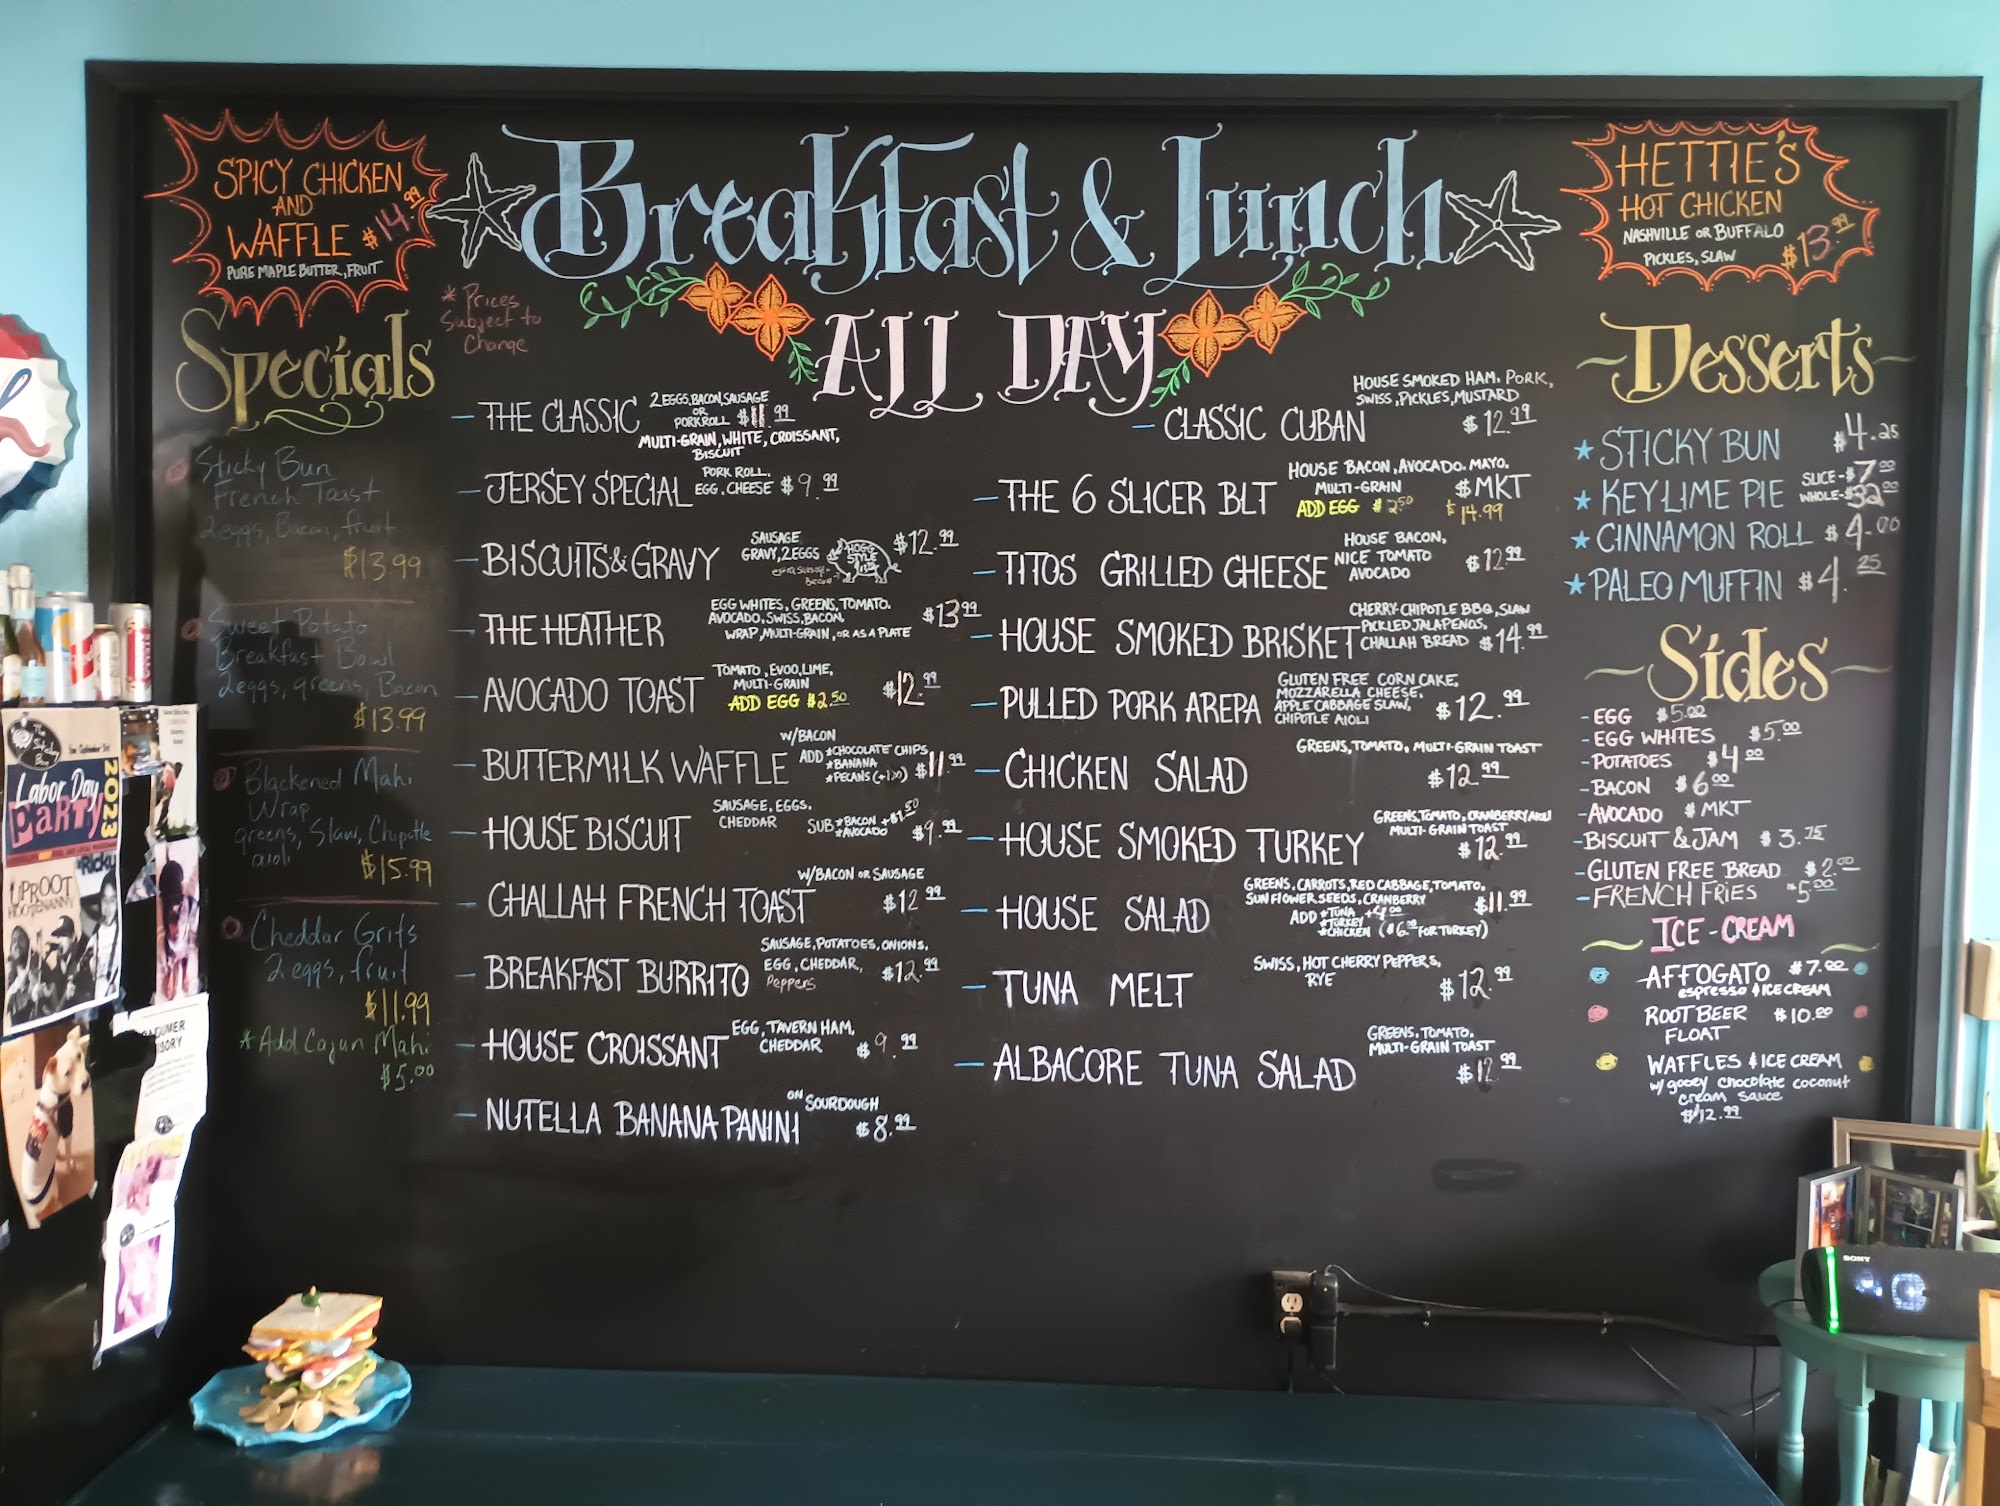 SPICY CHICKEN
AND
WAFFLE $14.99
PURE MAPLE BUTTER, FRUIT
Breakfast & Lunch
ALL DAY
* Prices
Subject to
Change
HETTIE'S
HOT CHICKEN
NASHVILLE OR BUFFALO
PICKLES, SLAW $13.99
Specials
Sticky Bun
French Toast
2eggs, Bacon, fruit
$13.99
Sweet Potato
Breakfast Bowl
2eggs, greens, Bacon
$13.99
Blackened Mahi
Wrap
greens, Slaw, Chipotle
aioli
$15.99
Cheddar Grits
2 eggs, fruit
$11.99
* Add Cajun Mahi
$5.00
- THE CLASSIC 2 EGGS, BACON, SAUSAGE
OR
PORKROLL $11.99
MULTI-GRAIN, WHITE, CROISSANT,
BISCUIT
- JERSEY SPECIAL PORK ROLL,
EGG, CHEESE $9.99
- BISCUITS & GRAVY SAUSAGE
GRAVY, 2 EGGS $12.99
HOGG
STYLE
- THE HEATHER EGG WHITES, GREENS, TOMATO.
AVOCADO, SWISS, BACON,
WRAP, MULTI-GRAIN, OR AS A PLATE $13.99
- AVOCADO TOAST TOMATO, EVOO, LIME,
MULTI-GRAIN $12.99
ADD EGG $2.50
- BUTTERMILK WAFFLE W/BACON
ADD *CHOCOLATE CHIPS
*BANANA
*PECANS (+1.00) $11.99
- HOUSE BISCUIT SAUSAGE, EGGS.
CHEDDAR SUB *BACON +$1.50
*AVOCADO $9.99
- CHALLAH FRENCH TOAST W/BACON OR SAUSAGE
$12.99
- BREAKFAST BURRITO SAUSAGE, POTATOES, ONIONS,
EGG, CHEDDAR, $12.99
Peppers
- HOUSE CROISSANT EGG, TAVERN HAM,
CHEDDAR $9.99
- NUTELLA BANANA PANINI ON SOURDOUGH
$8.99
- CLASSIC CUBAN HOUSE SMOKED HAM. PORK,
SWISS, PICKLES, MUSTARD
$12.99
- THE 6 SLICER BLT HOUSE BACON, AVOCADO. MAYO.
MULTI-GRAIN $MKT
ADD EGG $2.50 $14.99
- TITOS GRILLED CHEESE HOUSE BACON,
NICE TOMATO
AVOCADO $12.99
- HOUSE SMOKED BRISKET CHERRY-CHIPOTLE BBQ, SLAW
PICKLED JALAPENOS,
CHALLAH BREAD $14.99
- PULLED PORK AREPA GLUTEN FREE CORN CAKE,
MOZZARELLA CHEESE,
APPLE CABBAGE SLAW,
CHIPOTLE AIOLI $12.99
- CHICKEN SALAD GREENS, TOMATO, MULTI-GRAIN TOAST
$12.99
- HOUSE SMOKED TURKEY GREENS, TOMATO, CRANBERRY AIOLI
MULTI-GRAIN TOAST
$12.99
- HOUSE SALAD GREENS, CARROTS, RED CABBAGE, TOMATO.
SUNFLOWER SEEDS, CRANBERRY $11.99
ADD *TUNA +4.00
*TURKEY
*CHICKEN ($6.00 FOR TURKEY)
- TUNA MELT SWISS, HOT CHERRY PEPPERS,
RYE $12.99
- ALBACORE TUNA SALAD GREENS, TOMATO.
MULTI-GRAIN TOAST
$12.99
Desserts
STICKY BUN $4.25
KEY LIME PIE SLICE-$7.00
WHOLE-$32.00
CINNAMON ROLL $4.00
PALEO MUFFIN $4.25
Sides
- EGG $5.00
- EGG WHITES $5.00
- POTATOES $4.00
- BACON $6.00
- AVOCADO $MKT
- BISCUIT & JAM $3.75
- GLUTEN FREE BREAD $2.00
- FRENCH FRIES 5.00
ICE-CREAM
AFFOGATO $7.00
espresso & ICE CREAM
ROOT BEER $10.00
FLOAT
WAFFLES & ICE CREAM
w/ gooey chocolate coconut
cream sauce
$12.99
Labor Day
PARTY
2023
Ricky
UPROOT
HOOTENANNY
SONY